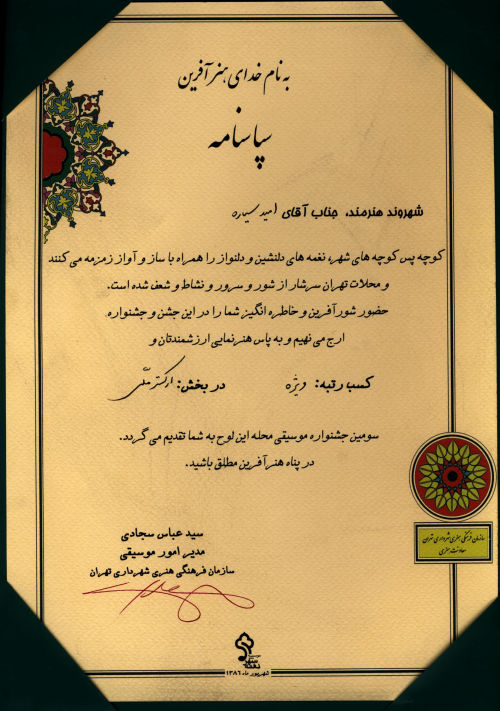 به نام خدای هنرآفرین
سپاسنامه
شهروند هنرمند، جناب آقای امید سیاره
کوچه پس کوچه های شهر، نغمه های دلنشین و دلنواز را همراه با ساز و آواز زمزمه می کنند
و محلات تهران سرشار از شور و سرور و نشاط و شعف شده است.
حضور شورآفرین و خاطره انگیز شما را در این جشن و جشنواره
ارج می نهیم و به پاس هنرنمایی ارزشمندتان و
کسب رتبه: ویژه در بخش: ارکستر ملّی
سومین جشنواره موسیقی محله این لوح به شما تقدیم می گردد.
در پناه هنرآفرین مطلق باشید.
سازمان فرهنگی هنری شهرداری تهران
معاونت هنری
سید عباس سجادی
مدیر امور موسیقی
سازمان فرهنگی هنری شهرداری تهران
شهریور ماه ۱۳۸۶